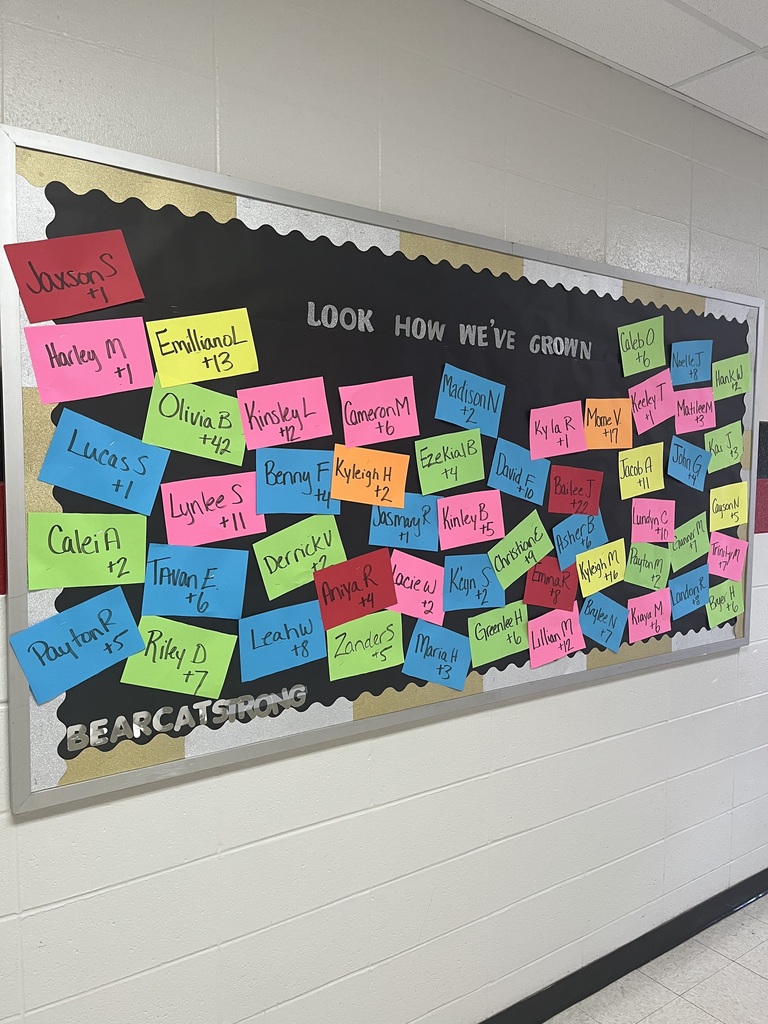 LOOK HOW WE'VE GROWN
Jaxson S
+1
Harley M
+1
Emilliano L
+13
Olivia B
+42
Kinsley L
+12
Cameron M
+6
Madison N
+2
Caleb O
+6
Noelle J
+8
Hank W
+2
Kyla R
+1
Mome V.
+17
Keeley T
+1
Matilee M
+3
Lucas S
+1
Lynlee S
+11
Benny F
+4
Kyleigh H
+2
Ezekial B
+4
David F.
+10
Bailee J
+22
Jacob A
+11
John G
+4
Kai J
+3
Calei A
+2
Tavan E.
+6
Derrick V
Jasmay R
+1
Kinley B
+5
Christian E
+9
Asher B
+6
Lundyn C
+10
Gunner M
+7
Cayson N
+5
Payton R
+5
Riley D
+7
Leah W
+8
Aniya R
+4
Lacie W
+2
K'eyn S
+2
Emma R
+8
Kyleigh M
+16
Payton M
+2
Trinity M
+7
Zander S
+5
Maria H
+3
Greenlee H
+6
Lillian M
+12
Baylee N
+7
Kiaya M
+6
Landon R
+8
Bryer H
+6
BEARCATSTRONG